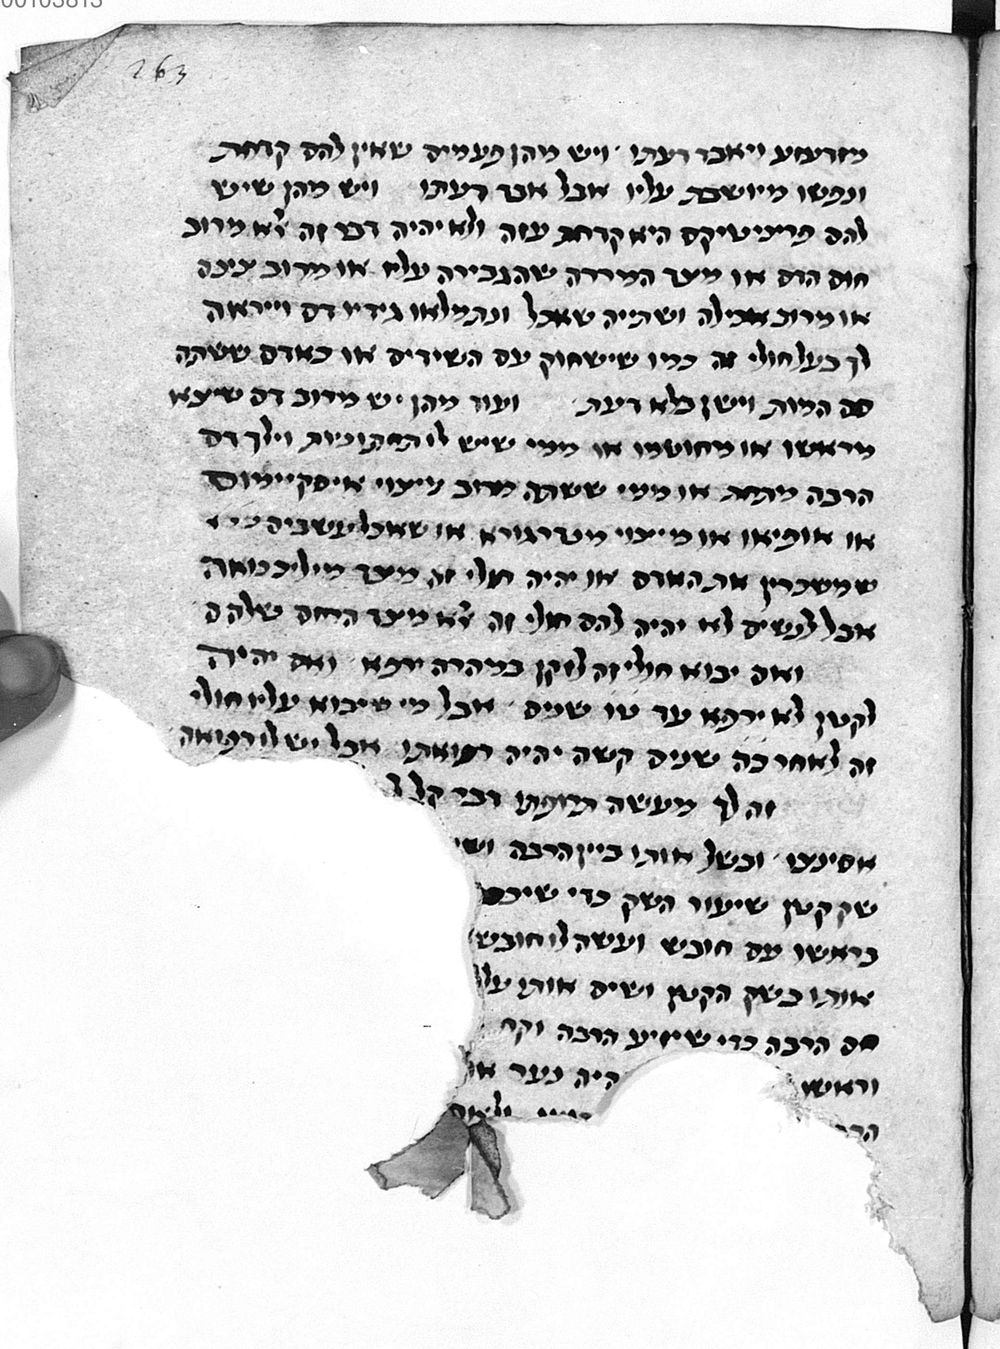 00103813
263
מזדעזע ויאבד דעתו ויש מהן פעמים שאין להם קדחת
ונפשו מיושבת עליו אבל אבד דעתו ויש מהן שיש
להם פריניטיקס היא קדחת עזה ולא יהיה דבר זה אלא מרוב
חום הדם או מצד המררה שהגבירה עליו או מרוב
או מרוב אכילה ושתייה שאכל ונתמלאו גידיו דם וייראה
לך בעל חולי זה כמו שישחוק עם השידים או כאדם ששתה
סם המות וישן בלא דעת ועוד מהן יש מרוב דם שיצא
מראשו או מחוטמו או ממי שיש לו תחתוניות וילך דם
הרבה מתחת או ממי ששתה מרוב מיצוי
או אופיאו או מיצוי או שאכל עשבים
שמשכרין את האדם או יהיה חולי זה מצד
אבל לנשים לא יהיה להם חולי זה אלא מצד הרחם שלהם
ואם יבוא חולי זה לזקן במהרה ירפא ואם יהיה
לקטן לא ירפא עד טו שנים אבל מי שיבוא עליו חולי
זה לאחר כה שנים קשה יהיה רפואתו אבל יש לו רפואה
זה לך מעשה תרופתו דבר קל
ובשל אותו ביין הרבה
שק קטן שיעור השק כדי
בראשו עם חובש ועשה לו
אותו בשק הקטן ושים אותו
חם הרבה כדי שיזיע הרבה
וראשו היה נער